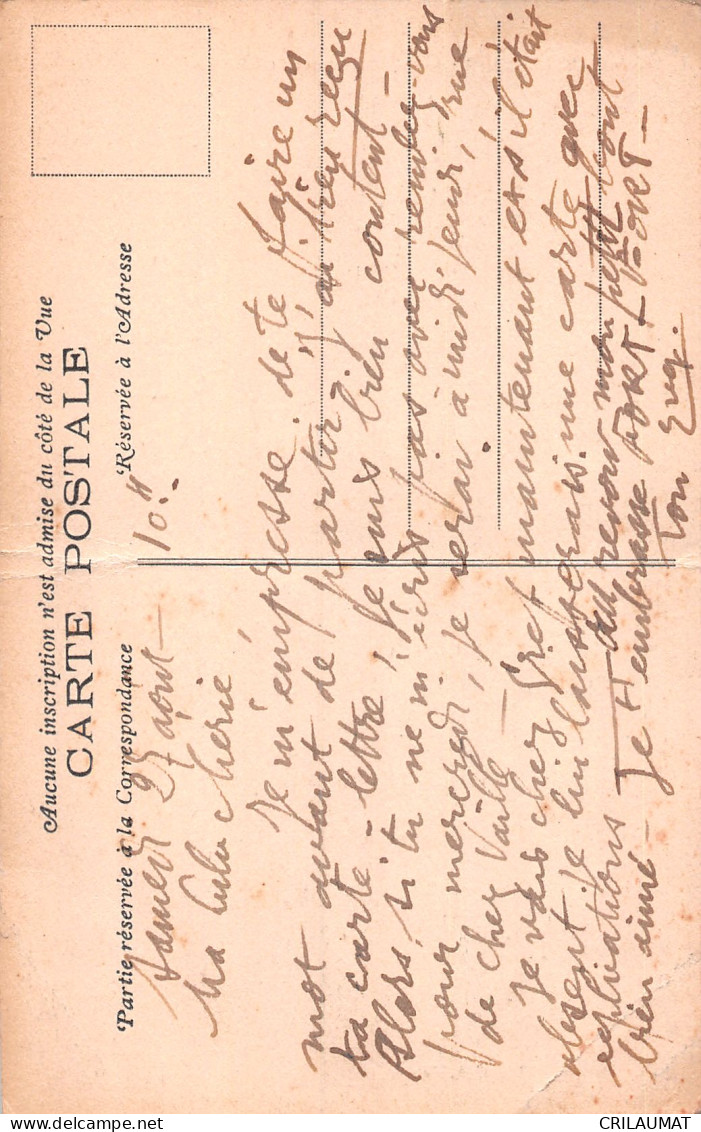 Aucune inscription n'est admise du côté de la Vue
CARTE POSTALE
Partie réservée à la Correspondance
Réservée à l'Adresse
Samedi 27 août – 10h
Ma Lulu chérie
Je m'empresse de te faire un
mot avant de partir. J'ai bien reçu
ta carte-lettre, je suis bien content –
Alors, si tu ne m'écris pas avec rendez-vous
pour mercredi, je serai à midi jeudi, rue
de chez Vaille –
Je vais chez maintenant et s'il était
absent je lui laisserais une carte avec
explications Au revoir mon petit bout
bien aimé – Je t'embrasse FORT – FORT –
Ton
CRILAUMAT